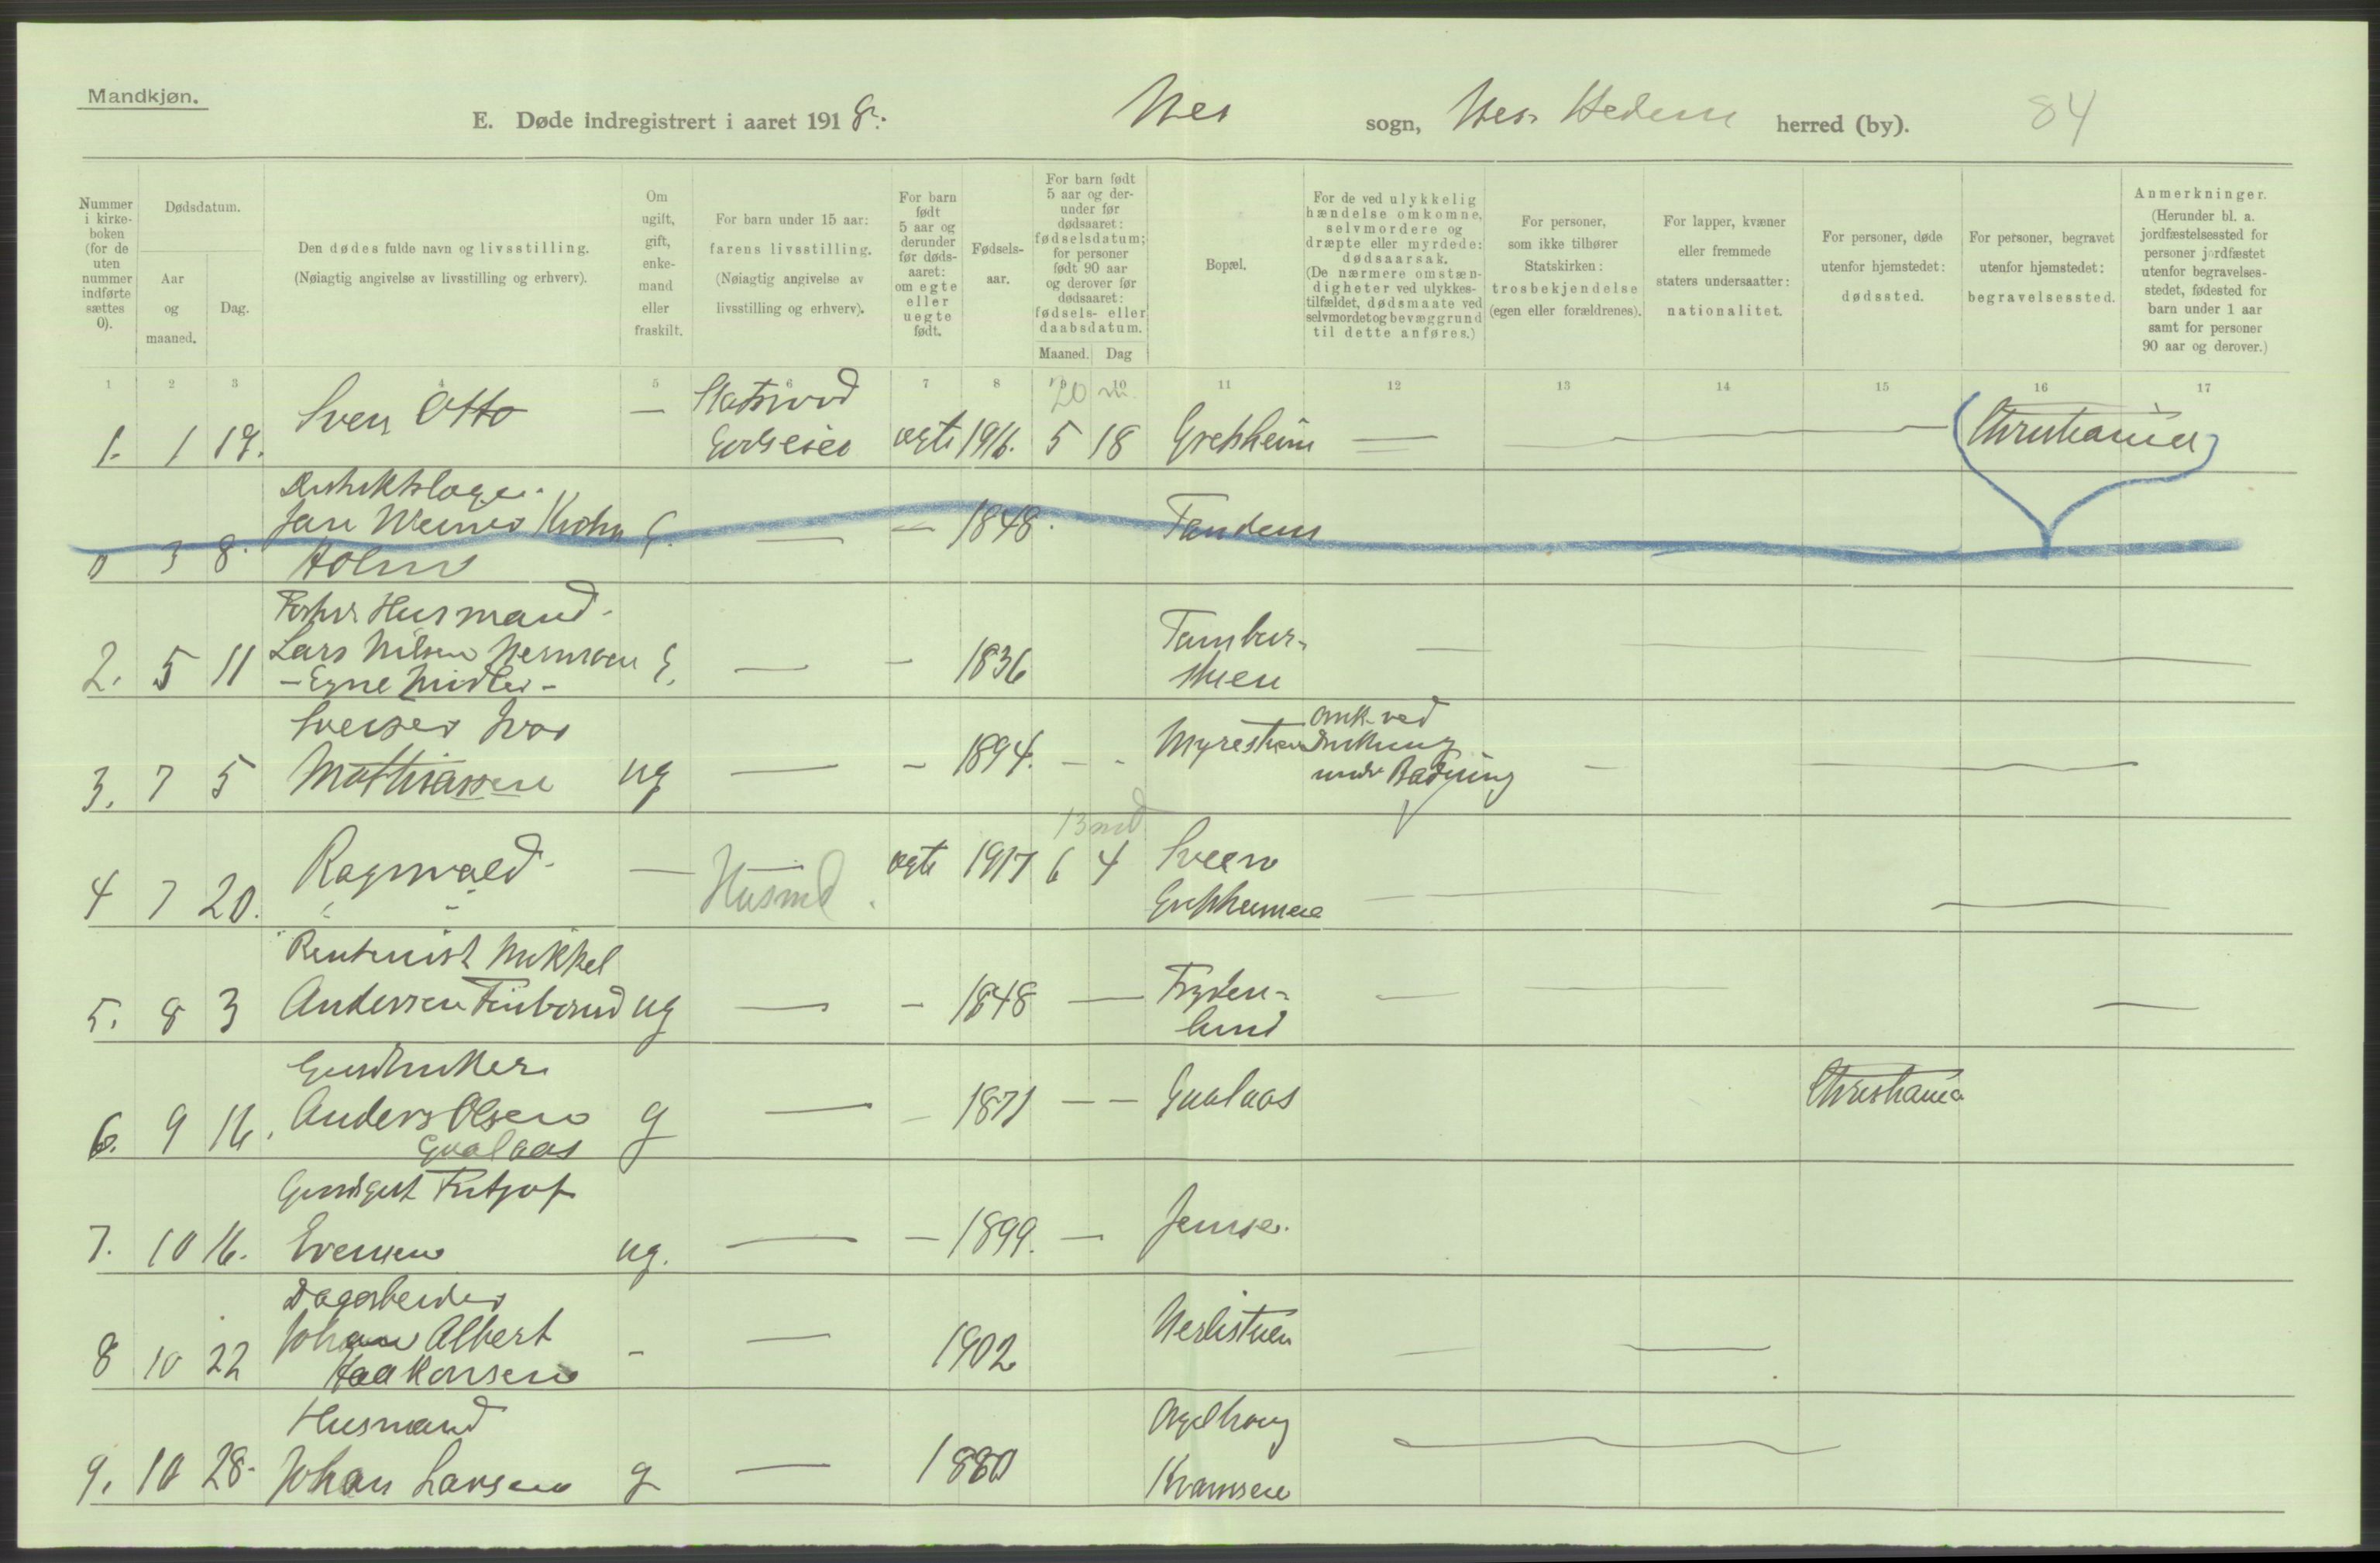 Mandkjøn.
E. Døde indregistrert i aaret 1918.
Nes sogn, Nes Hedem herred (by).
84
Nummer i kirke-boken (for de uten nummer indførte sættes 0).
Dødsdatum.
Aar og maaned.
Dag.
Den dødes fulde navn og livsstilling.
(Nøiagtig angivelse av livsstilling og erhverv).
Om ugift, gift, enke-mand eller fraskilt.
For barn under 15 aar:
farens livsstilling.
(Nøiagtig angivelse av livsstilling og erhverv).
For barn født 5 aar og derunder før døds-aaret: om egte eller uegte født.
Fødsels-aar.
For barn født 5 aar og der-under før dødsaaret: fødselsdatum; for personer født 90 aar og derover før dødsaaret: fødsels- eller daabsdatum.
Maaned. Dag
Bopæl.
For de ved ulykkelig hændelse omkomne, selvmordere og dræpte eller myrdede: dødsaarsak.
(De nærmere omstæn-digheter ved ulykkes-tilfældet, dødsmaate ved selvmordet og bevæggrund til dette anføres.)
For personer, som ikke tilhører Statskirken: trosbekjendelse (egen eller forældrenes).
For lapper, kvæner eller fremmede staters undersaatter: nationalitet.
For personer, døde utenfor hjemstedet: dødssted.
For personer, begravet utenfor hjemstedet: begravelsessted.
Anmerkninger.
(Herunder bl. a. jordfæstelsessted for personer jordfæstet utenfor begravelses-stedet, fødested for barn under 1 aar samt for personer 90 aar og derover.)
1 2 3 4 5 6 7 8 9 10 11 12 13 14 15 16 17
20 m.
Sven Otto —
Godseier
1. 1 19. egte 1916. 5 18 Grefsheim — Christiania
Distriktslæge
Jan Werner Krohn G. — — 1848. Tanden
0 3 8. Holm
Forhv. Husmand
2. 5 11 Lars Nilsen E. — — 1836 Tambur-
- Egne Midler - stuen
Sveiser Ivar
3. 7 5 Mathiassen ug — — 1894. — — Myrestuen
Omk. ved
Drukning
under Badning
13 md
4 7 20. Ragnvald — Husmd. egte 1917 6 4 Sveen
Grefsheimeie
Rentenist Mikkel
5. 8 3 Andersen ug — — 1848 — Fryden-
lund
Gaardbruker
6. 9 16. Anders Olsen g — — 1871 — — Gaalaas Christiania
Gaalaas
Fritjof
7. 10 16. Evensen ug. — — 1899. — Jemse.
Dagarbeider
8 10 22 Johan Albert - — 1902 Nerlistuen
Haakonsen
Husmand
9. 10 28. Johan Larsen g — 1880